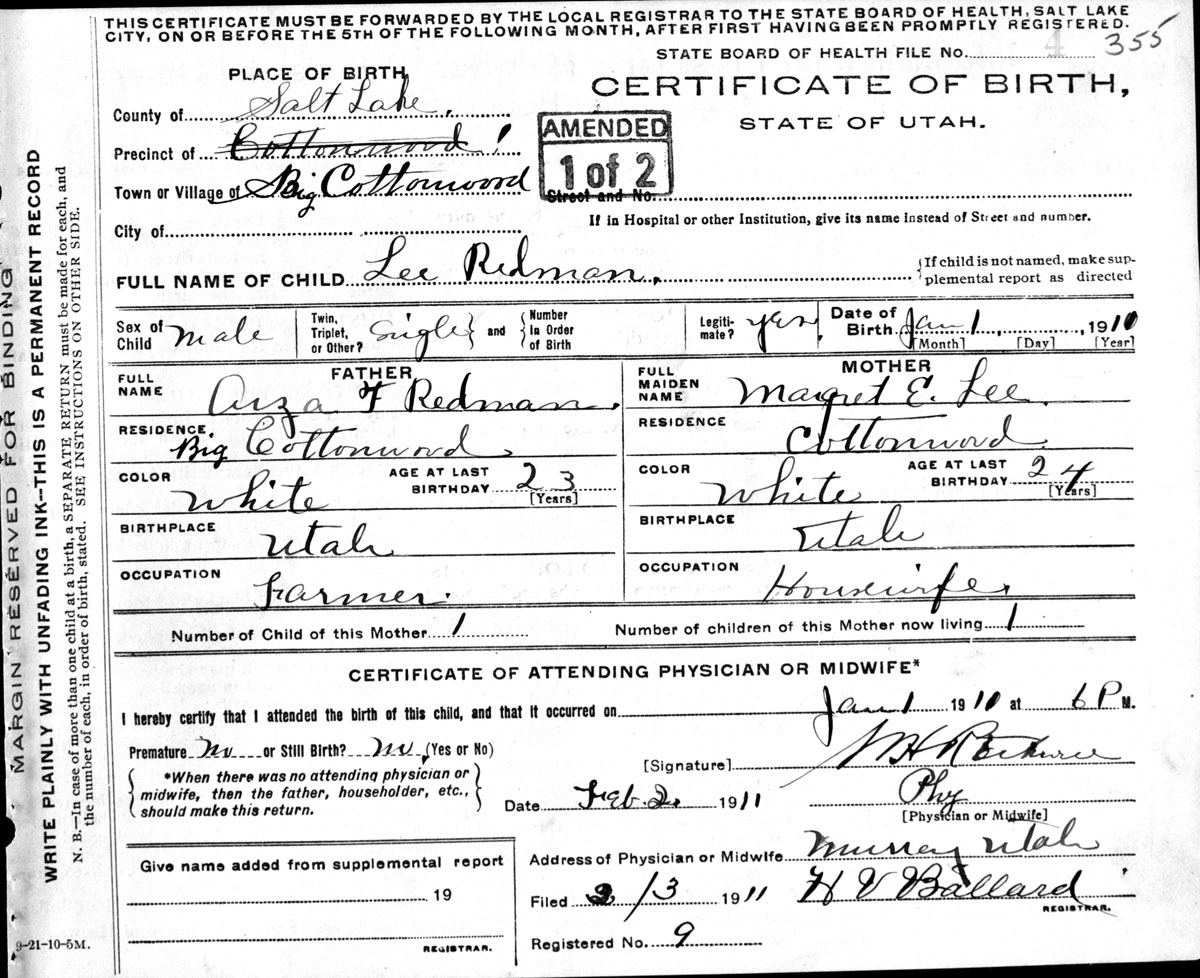 THIS CERTIFICATE MUST BE FORWARDED BY THE LOCAL REGISTRAR TO THE STATE BOARD OF HEALTH, SALT LAKE
CITY, ON OR BEFORE THE 5TH OF THE FOLLOWING MONTH, AFTER FIRST HAVING BEEN PROMPTLY REGISTERED.
STATE BOARD OF HEALTH FILE No. 4 355
PLACE OF BIRTH
CERTIFICATE OF BIRTH,
STATE OF UTAH.
County of Salt Lake
AMENDED
1 of 2
Precinct of Cottonwood
Town or Village of Big Cottonwood
Street and No.
City of
If in Hospital or other Institution, give its name instead of Street and number.
FULL NAME OF CHILD Lee Redman,
If child is not named, make sup-
plemental report as directed
Sex of Child male
Twin, Triplet, or Other? Single and Number In Order of Birth
Legiti-mate? yes
Date of Birth Jan 1, 1910
[Month] [Day] [Year]
FATHER
FULL NAME Arza F Redman.
RESIDENCE Big Cottonwood.
COLOR White AGE AT LAST BIRTHDAY 23 [Years]
BIRTHPLACE Utah
OCCUPATION Farmer.
MOTHER
FULL MAIDEN NAME Margret E. Lee.
RESIDENCE Cottonwood.
COLOR White AGE AT LAST BIRTHDAY 24 [Years]
BIRTHPLACE Utah
OCCUPATION Housewife.
Number of Child of this Mother 1
Number of children of this Mother now living 1
CERTIFICATE OF ATTENDING PHYSICIAN OR MIDWIFE*
I hereby certify that I attended the birth of this child, and that it occurred on Jan 1 1910 at 6 P M.
Premature no or Still Birth? no (Yes or No)
[Signature]
*When there was no attending physician or
midwife, then the father, householder, etc.,
should make this return.
Date Feb 2 1911
Phy
[Physician or Midwife]
Give name added from supplemental report
19
REGISTRAR.
Address of Physician or Midwife Murray Utah
Filed 2/3 1911 H V Ballard
REGISTRAR.
Registered No. 9
9-21-10-5M.
MARGIN RESERVED FOR BINDING
WRITE PLAINLY WITH UNFADING INK--THIS IS A PERMANENT RECORD
N. B.—In case of more than one child at a birth, a SEPARATE RETURN must be made for each, and
the number of each, in order of birth, stated. SEE INSTRUCTIONS ON OTHER SIDE.